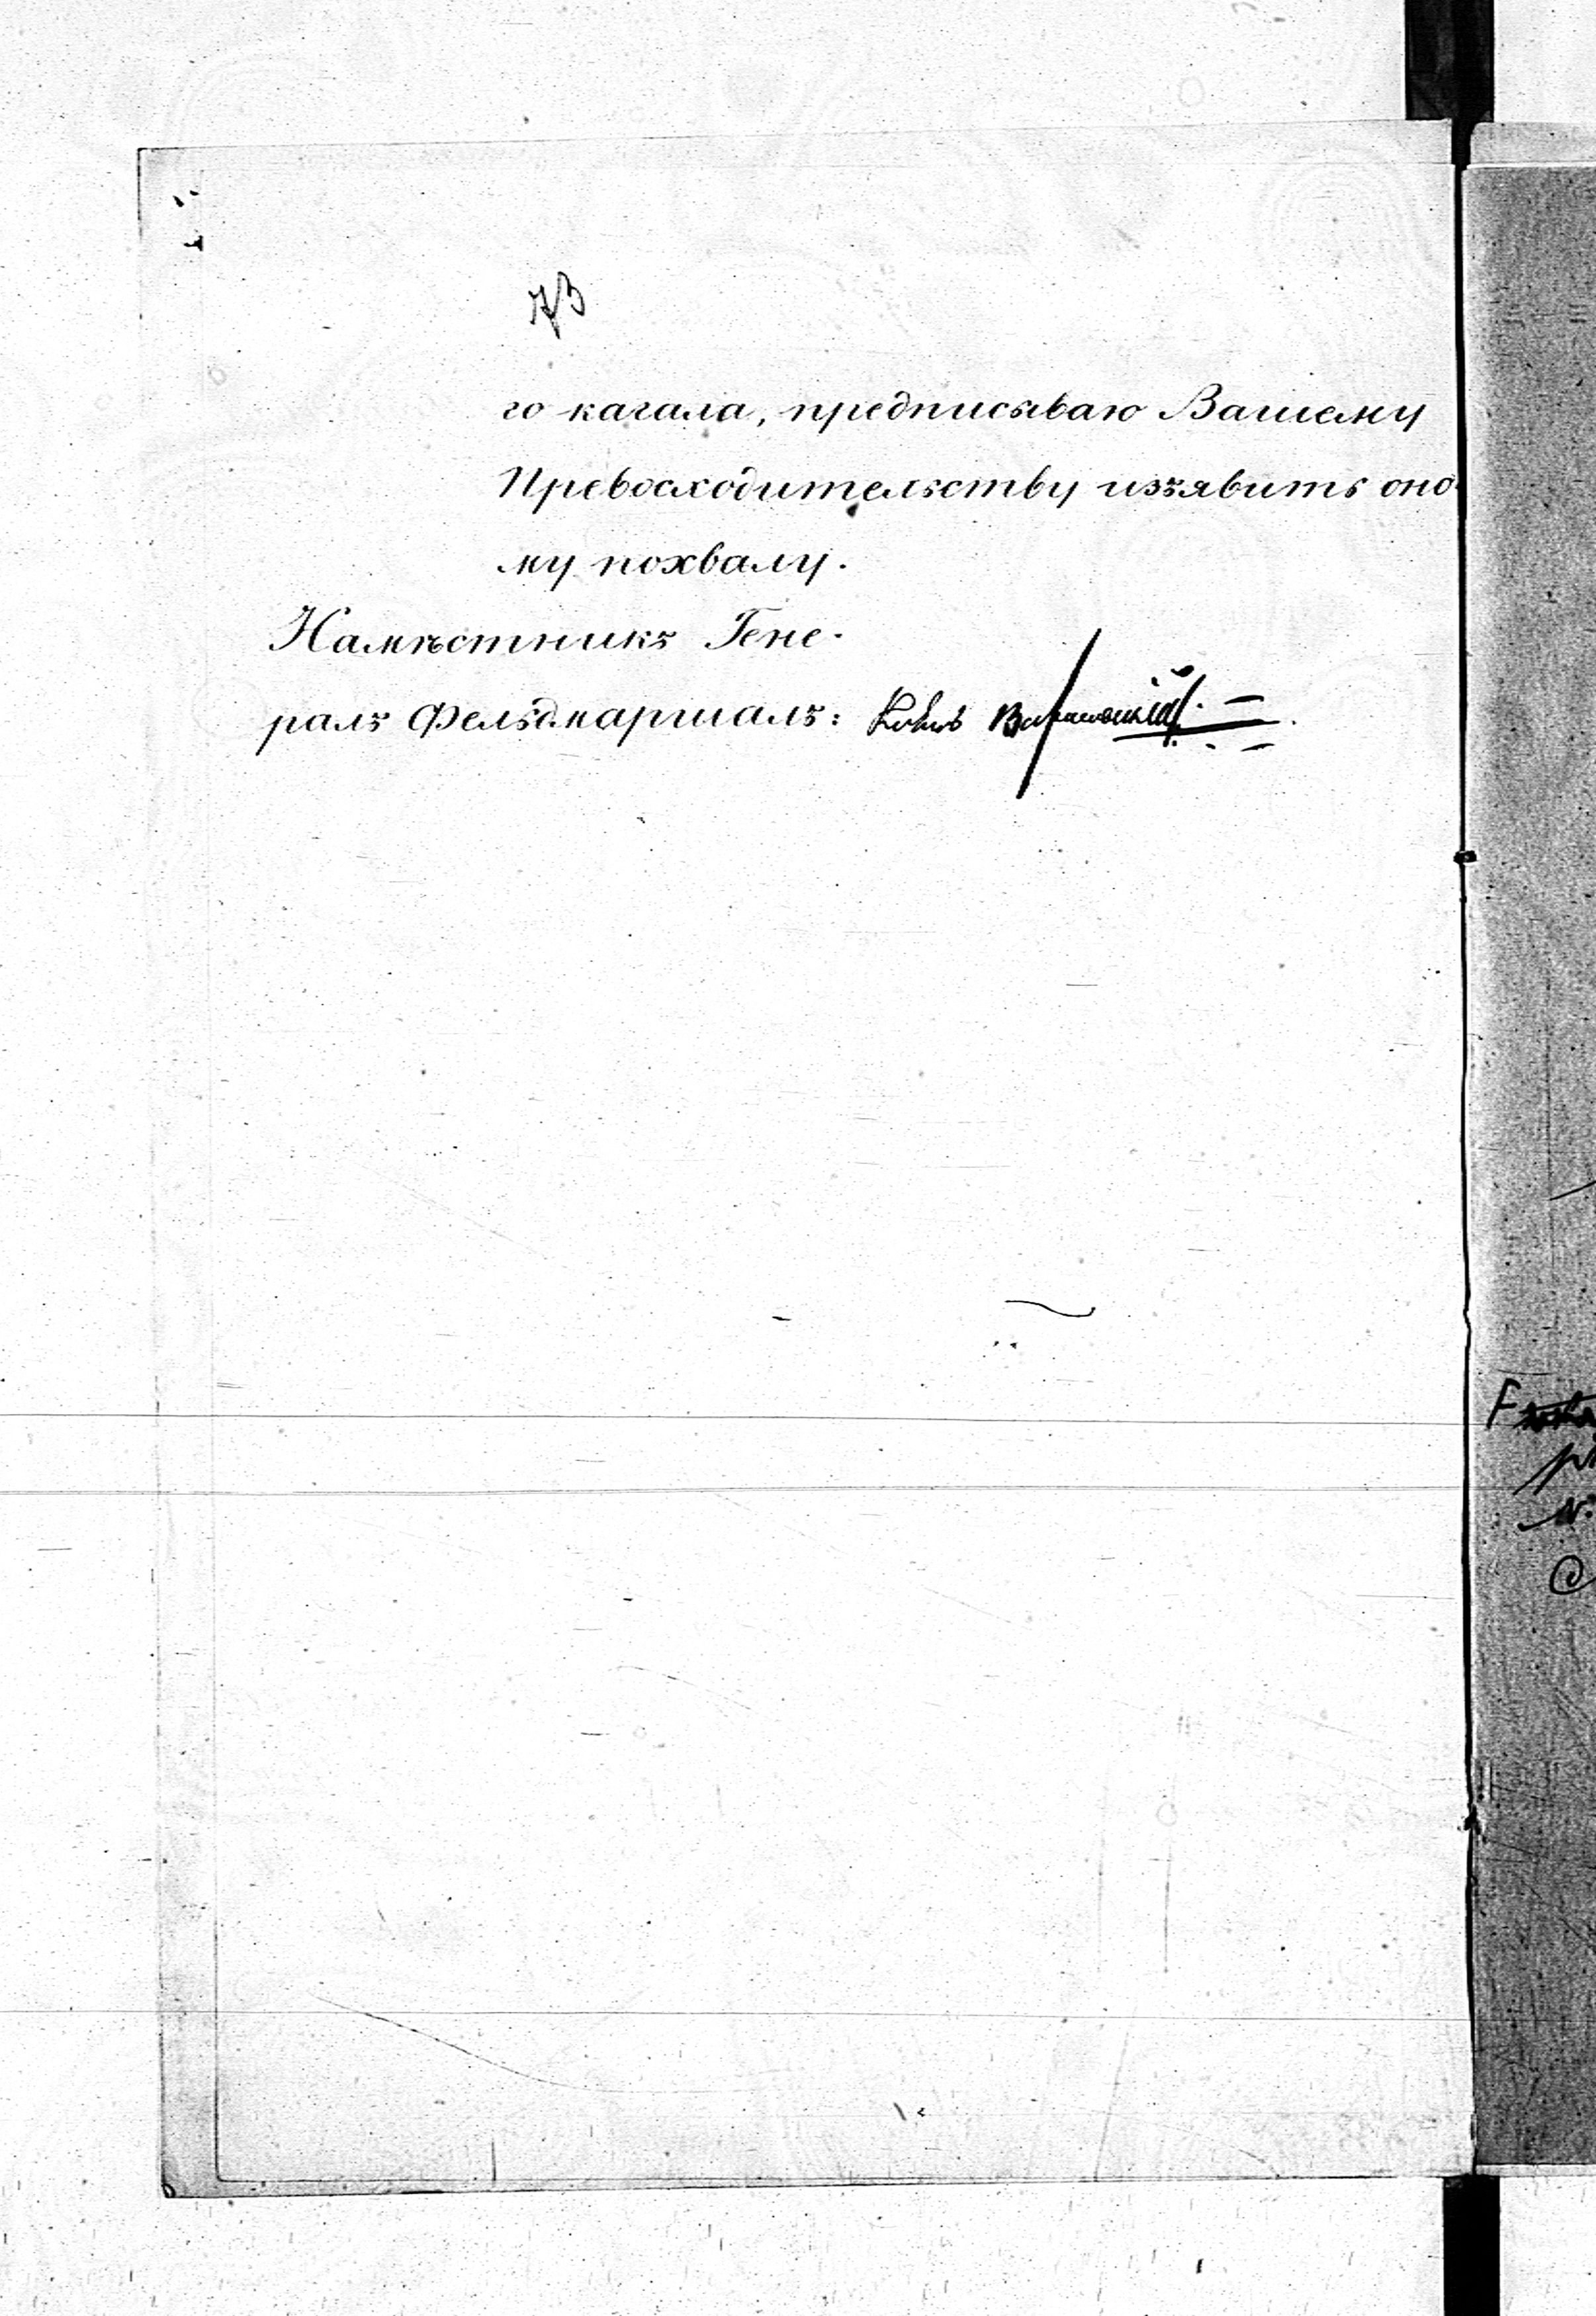 73
го кагала, предписываю Вашему
Превосходительству изъявить оно-
му похвалу.
Намѣстникъ Гене-
ралъ Фельдмаршалъ: